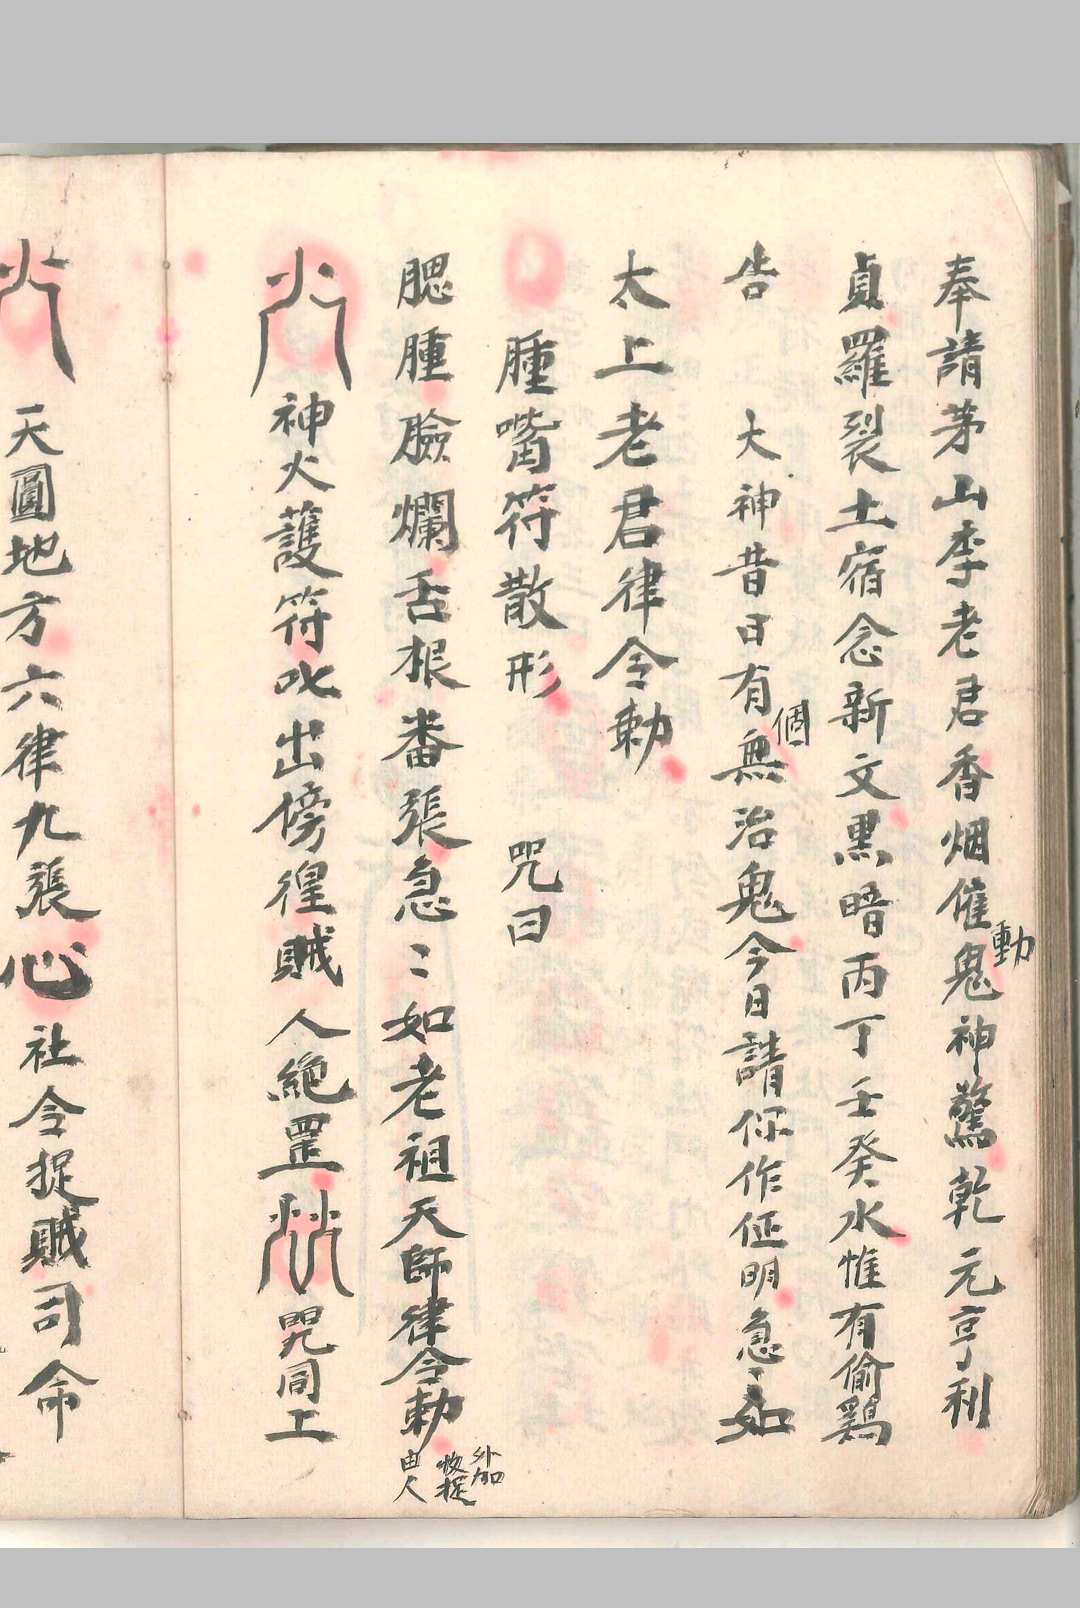 奉請茅山李老君香烟催動鬼神驚乾元亨利
貞羅裂土宿念新文黑暗丙丁壬癸水惟有偷鷄
告 大神昔日有個無治鬼今日請你作证明急如
太上老君律令勅
腫嘴符散形 咒曰
腮腫臉爛舌根番張急〻如老祖天師律令勅
外加
收捉
由人
神火護符吪出傍徨賊人絶罡 咒同上
天圓地方六律九張心社令捉賊司命